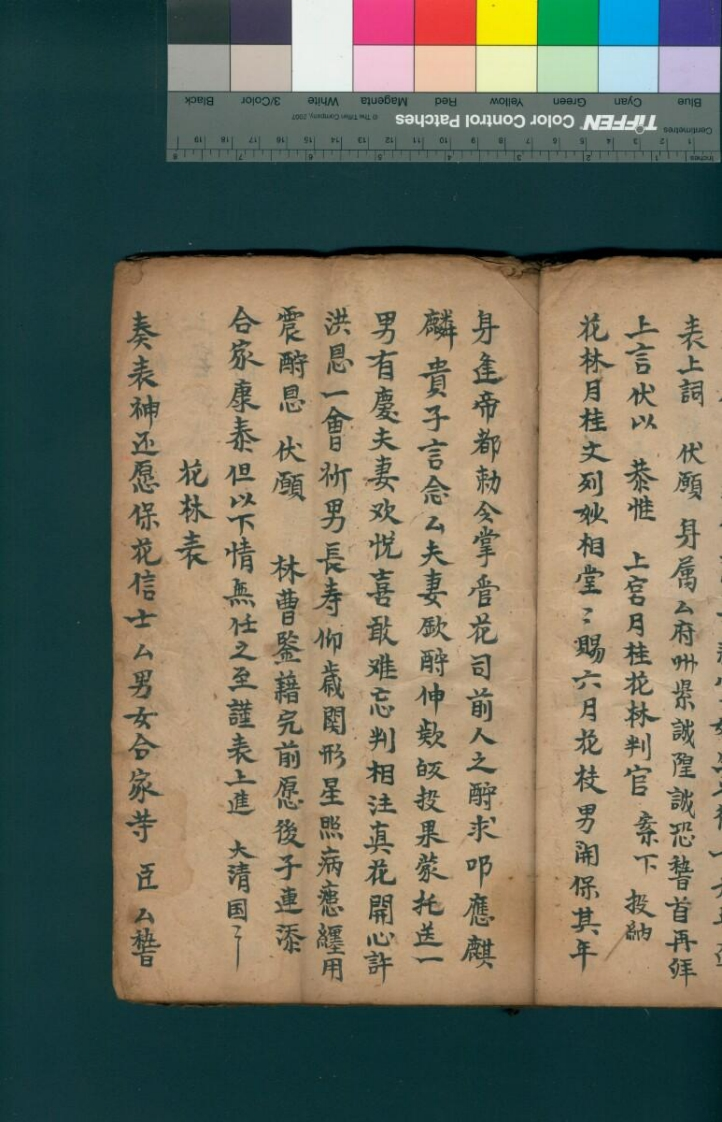 表上詞 伏願 身属厶府州㫮誠隍誠恐稽首再拜
上言伏以 恭惟 上宮月桂花林判官 案下 投納
花林月桂文列妙相堂〻賜六月花枝男開保其年
身逢帝都勅令掌管花司前人之酧求叩應麒
麟貴子言念厶夫妻歃酧伸欵皈投果蒙托送一
男有慶夫妻欢悅喜敢难忘判相注真花開心許
洪恩一會祈男長寿仰歳関形星照病患纏用
震酧恩 伏願 林曹鑒藉完前愿後子連添
合家康泰但以下情無任之至謹表上進 大清国〻
花林表
奏表神还愿保花信士厶男女合家䓁 臣厶稽
Blue Cyan Green Yellow Red Magenta White 3/Color Black
TIFFEN Color Control Patches © The Tiffen Company, 2007
Centimetres 1 2 3 4 5 6 7 8 9 10 11 12 13 14 15 16 17 18 19
Inches 1 2 3 4 5 6 7 8